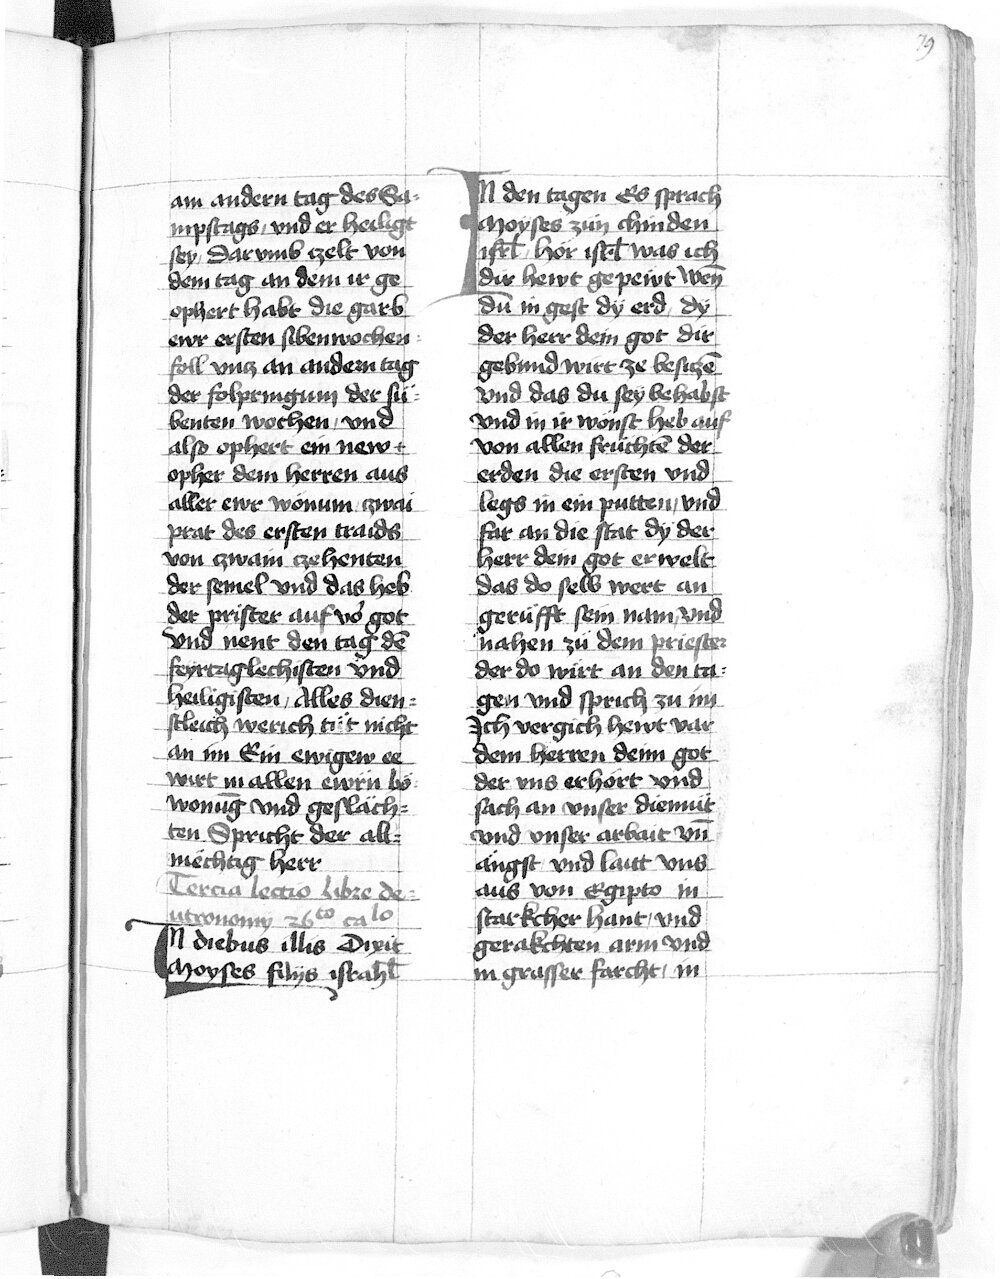 79
am andern tag des Sa-
mpstags, vnd er heiligt
sey, Dar vmb czelt von
dem tag an dem ir ge
ophert habt die garb
ewr ersten siben wochen
foll vncz an andern tag
der folpringum der sü-
benten wochen, vnd
also ophert ein new
opher dem herren aus
aller ewr wonum, czwai
prat des ersten traids
von czwain czehenten
der semel vnd das heb
der prister auf vō got
vnd nent den tag dē
feyrtaglechisten vnd
heiligisten, Alles dien-
stleich werich tüt nicht
an im Ein ewigew ee
wirt in allen ewrn bö-
wonūg vnd geslách-
ten Spricht der all-
mēchtag herr
Tercia lectio libre de-
utronomy 26to calo
IN diebus illis Dixit
Moyses filijs israhl
IN den tagen Es sprach
Moyses zün chinden
isrl, hör isrl was ich
dir hewt gepewt Wen̄
du in gest dÿ erd, dy
der herr dem got dir
gebund wirt ze besiczē
vnd das du sey behabst
vnd in ir wonst heb auf
von allen früchtē der
erden die ersten vnd
legs in ein putten, vnd
far an die stat dy der
herr dem got erwelt
das do selb wert an
gerüfft sein nam, vnd
nahen zü dem priester
der do wirt an den ta-
gen vnd sprich zu im
Ich vergich hewt var
dem herren deim got
der vns erhört vnd
sach an vnser diemüt
vnd vnser arbait vn̄
angst vnd laitt vns
aus von Egipto in
starkcher hant, vnd
gerakchten arm vnd
in grasser farcht, in